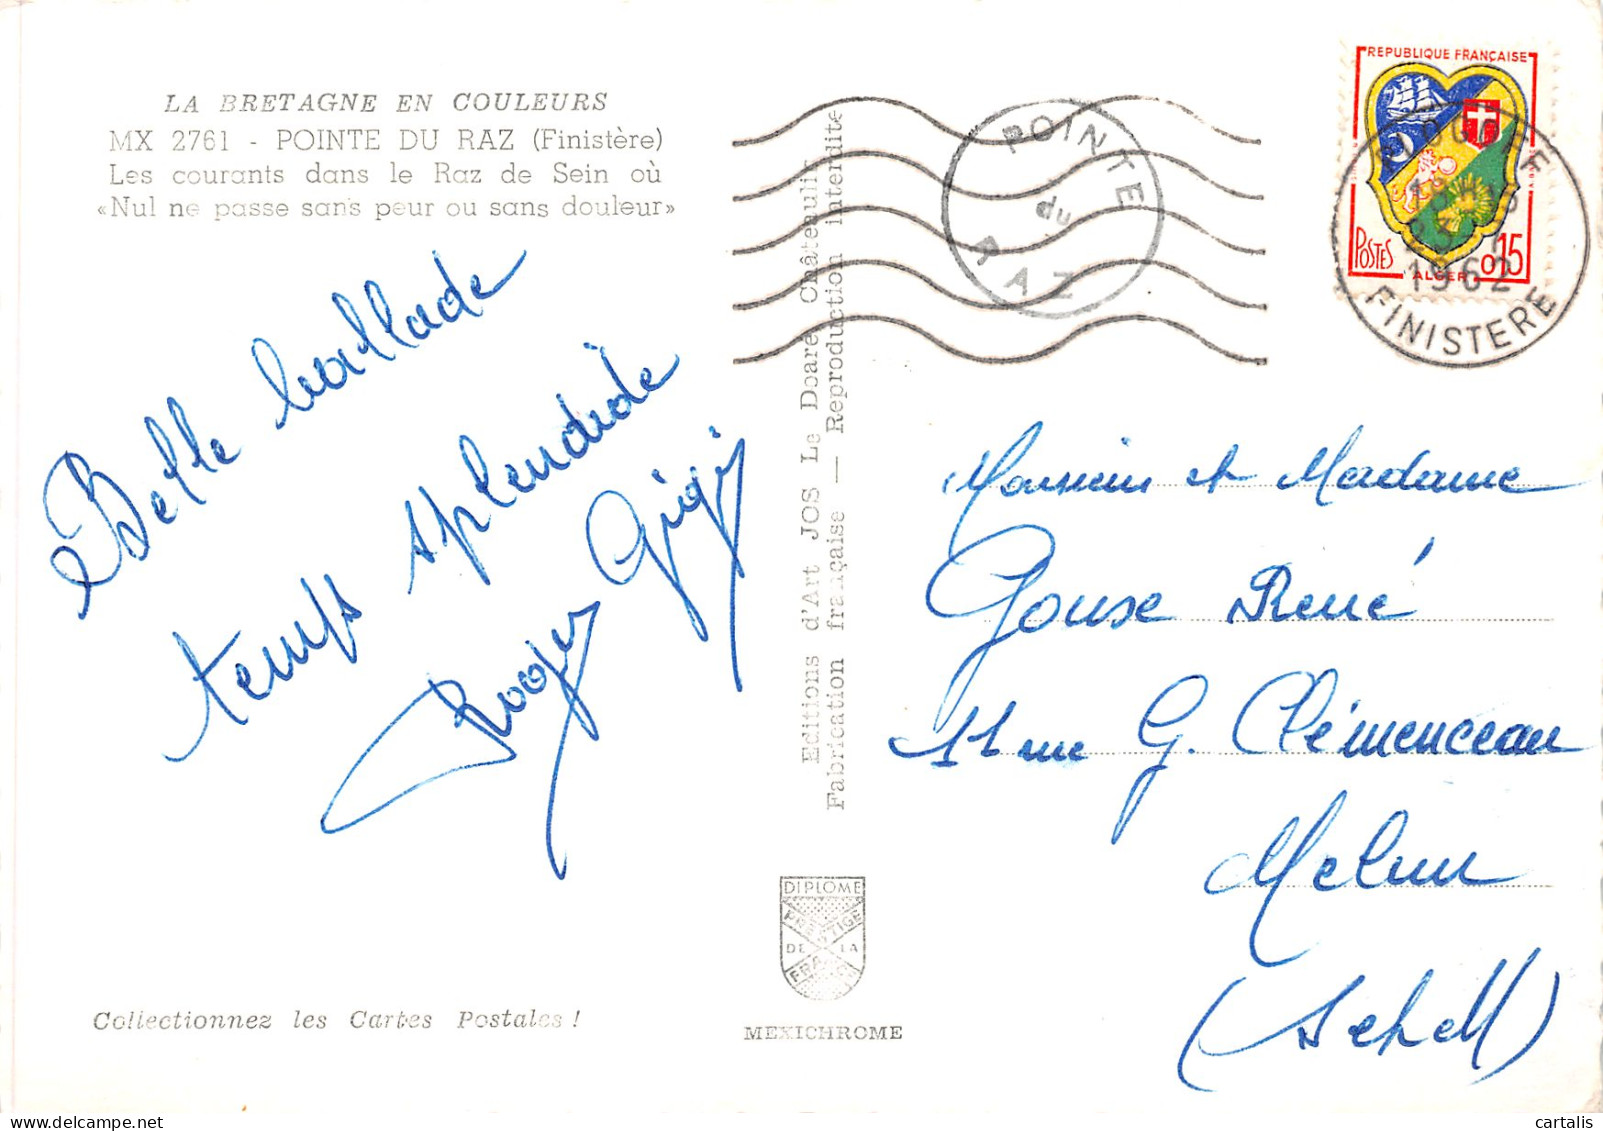 LA BRETAGNE EN COULEURS
MX 2761 - POINTE DU RAZ (Finistère)
Les courants dans le Raz de Sein où
«Nul ne passe sans peur ou sans douleur»
Belle ballade
temps splendide
Roger Gigi
Collectionnez les Cartes Postales !
Editions d'Art JOS Le Doaré Châteaulin
Fabrication française — Reproduction interdite
DIPLOME
PRESTIGE
DE LA
FRANCE
MEXICHROME
POINTE
du
RAZ
REPUBLIQUE FRANÇAISE
POSTES
ALGER
0,15
1962
FINISTERE
Monsieur et Madame
Gouse René
11 rue G. Clémenceau
Melun
(S et M)
cartalis
www.delcampe.net